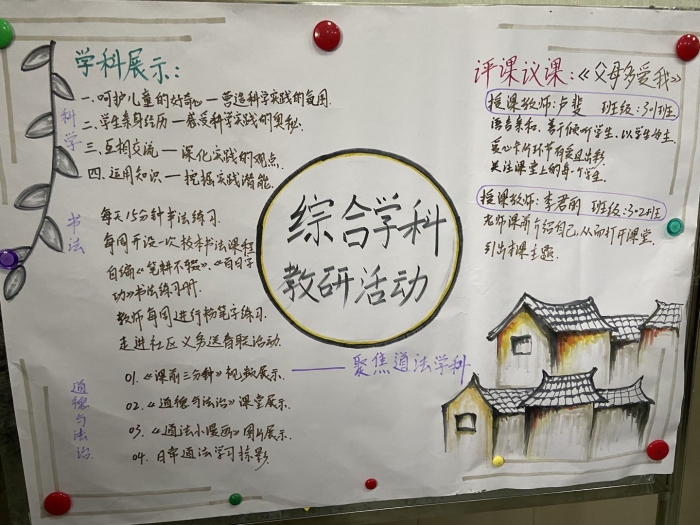 学科展示:
科学
一.呵护儿童的好奇心—营造科学实践的氛围.
二.学生亲身经历—感受科学实践的奥秘.
三.互相交流—深化实践的观点.
四.运用知识—挖掘实践潜能.
书法
每天15分钟书法练习.
每周开设一次校本书法课程
自编《笔耕不辍》、《百日子
功》书法练习册.
教师每周进行粉笔字练习.
走进社区义务送春联活动.
道德与法治
01.《课前三分钟》视频展示.
02.《道德与法治》课堂展示.
03.《道法小漫画》图片展示.
04.日常道法学习掠影.
综合学科
教研活动
——聚焦道法学科
评课议课:《父母多爱我》
授课教师:卢斐 班级:3.1班
语言亲和、善于倾听学生,以学生为主.
爱心卡片环节有爱且出彩.
关注课堂上的每个学生.
授课教师:李君丽 班级:3.2班
老师课前介绍自己,从而打开课堂.
引出本课主题.